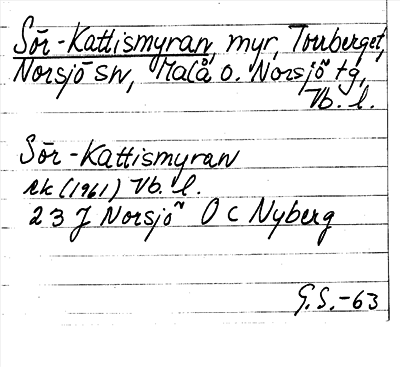 Sör-Kattismyran, myr, Torrberget,
Norsjö sn, Malå o. Norsjö tg,
Vb. l.
Sör-Kattismyran
ek (1961) Vb. l.
23 J Norsjö O C Nyberg
G.S.-63